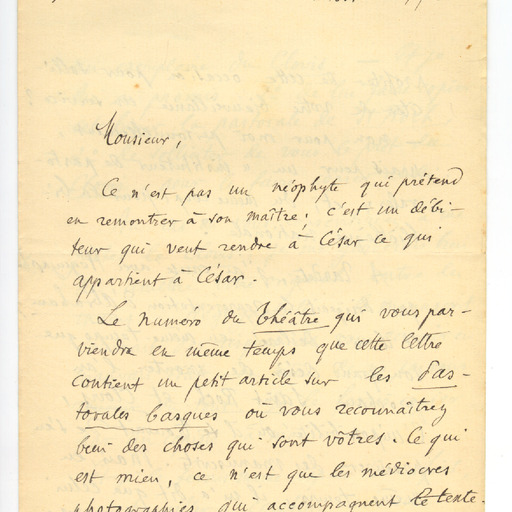 Monsieur,
Ce n'est pas un néophyte qui prétend
en remontrer à son maître ; c'est un débi-
teur qui veut rendre à César ce qui
appartient à César.
Le numéro du Théâtre qui vous par-
viendra en même temps que cette lettre
contient un petit article sur les Pas-
torales basques où vous reconnaîtrez
bien des choses qui sont vôtres. Ce qui
est mien, ce n'est que les médiocres
photographies qui accompagnent le texte.